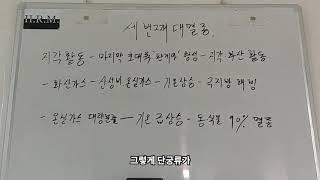 H.R.M.
세 번째 대멸종.
지각활동 - 마지막 초대륙 판게아 형성 - 지각 화산 활동
- 화산가스 - 산성비, 온실가스 - 기온상승 - 극지방 해빙
- 온실가스 대량분출 - 기온 급상승 - 동식물 90% 멸종
그렇게 단궁류가